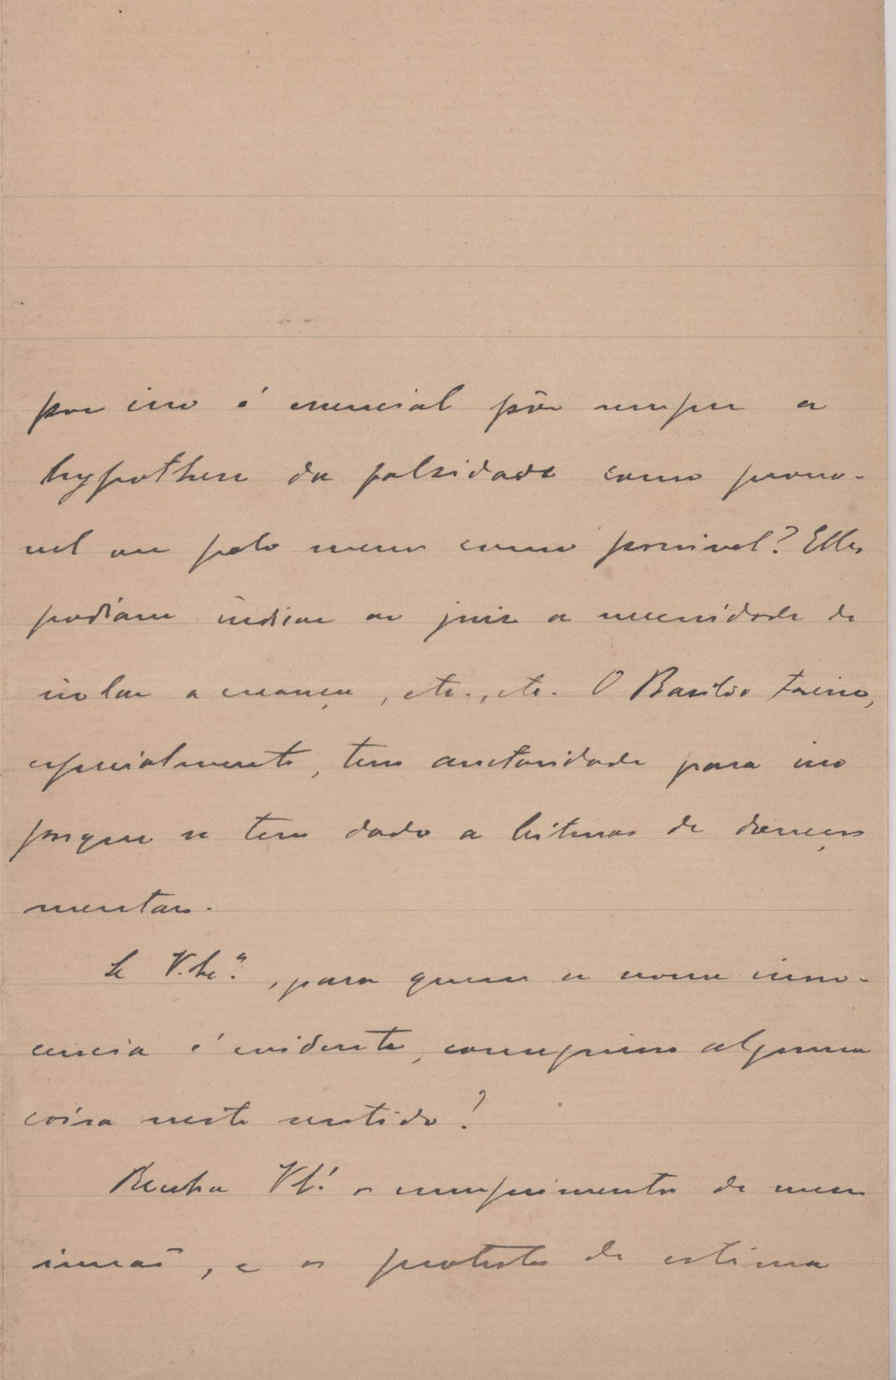 por isso é essencial pôr sempre a
hypothese da falsidade como prova-
vel ou pelo menos como possivel? Elles
podiam indicar ao juiz a necessidade de
isolar a creança, etc., etc. O Basilio Freire,
especialmente, tem auctoridade para isso
porque se tem dado a leituras de doenças
mentaes.
Se V. Ex.ª, para quem a nossa inno-
cencia é evidente, conseguisse alguma
coisa neste sentido!
Receba V. Ex.ª os cumprimentos de meu
irmão, e os protestos de estima